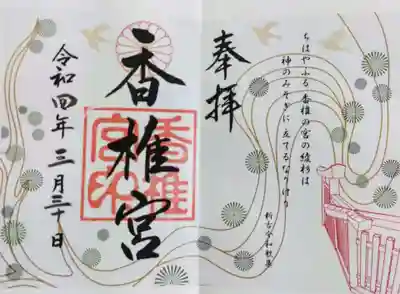 ちはやふる 香椎の宮の綾杉は
神のみそぎに 立てるなりけり
新古今和歌集
奉拝
香椎宮
香椎
宮印
令和四年 三月三十日